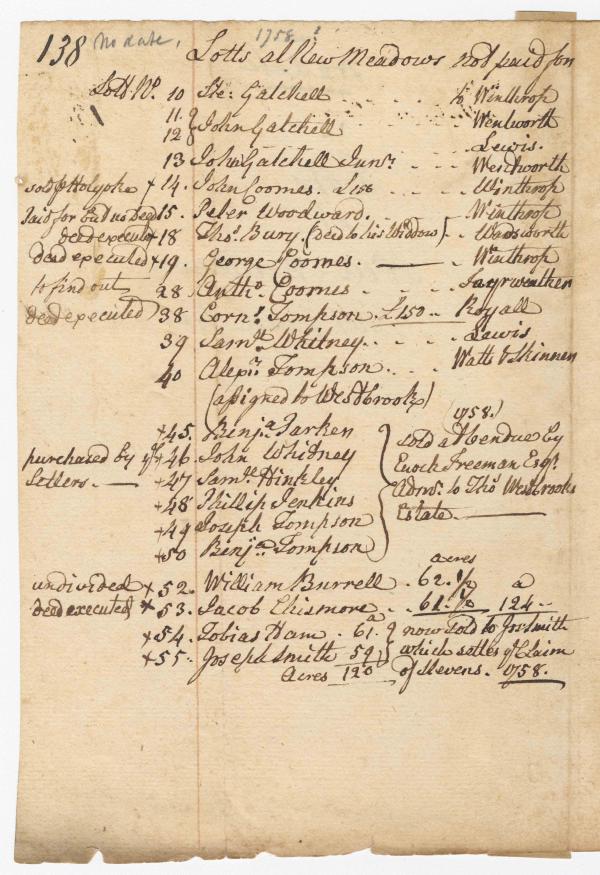 138 No date, 1758?
Lotts at New Meadows not paid for
Lott No. 10 Ste: Gatchell to Winthrop
11
12 } John Gatchell Wentworth
Lewis.
13 John Gatchell Junr. Wentworth
sold p Holyoke + 14. John Coomes. £156 Winthrop
paid for but no Deed 15. Peter Woodward. Winthrop
deed executed + 18 Thos. Bury (Deed to his Widdow) Wadsworth
deed executed + 19. George Coomes. Winthrop
to find out 28 Antho. Coomes Fayrweather
deed executed 38 Corns. Tompson £150 Royall
39 Saml. Whitney Lewis
40 Alexr. Tompson Watts & Skinner
(assigned to Westbrook)
+45. Benja. Larken (1758.)
purchased by ye +46. John Whitney } sold at Vendue by
Setlers. +47 Saml. Hinkley Enoch Freeman Esqr.
+48 Phillip Jenkins Admr. to Thos. Westbrooks
+49 Joseph Tompson Estate.
+50 Benja. Tompson
acres
undivided + 52. William Burrell 62.1/2 a
deed executed + 53. Jacob Clismore 61.1/2 124
+54. Tobias Ham. 61.a } now sold to Jos. Smith
+55. Joseph Smith 59 which settles ye Claim
Acres 120 of Stevens. 1758.